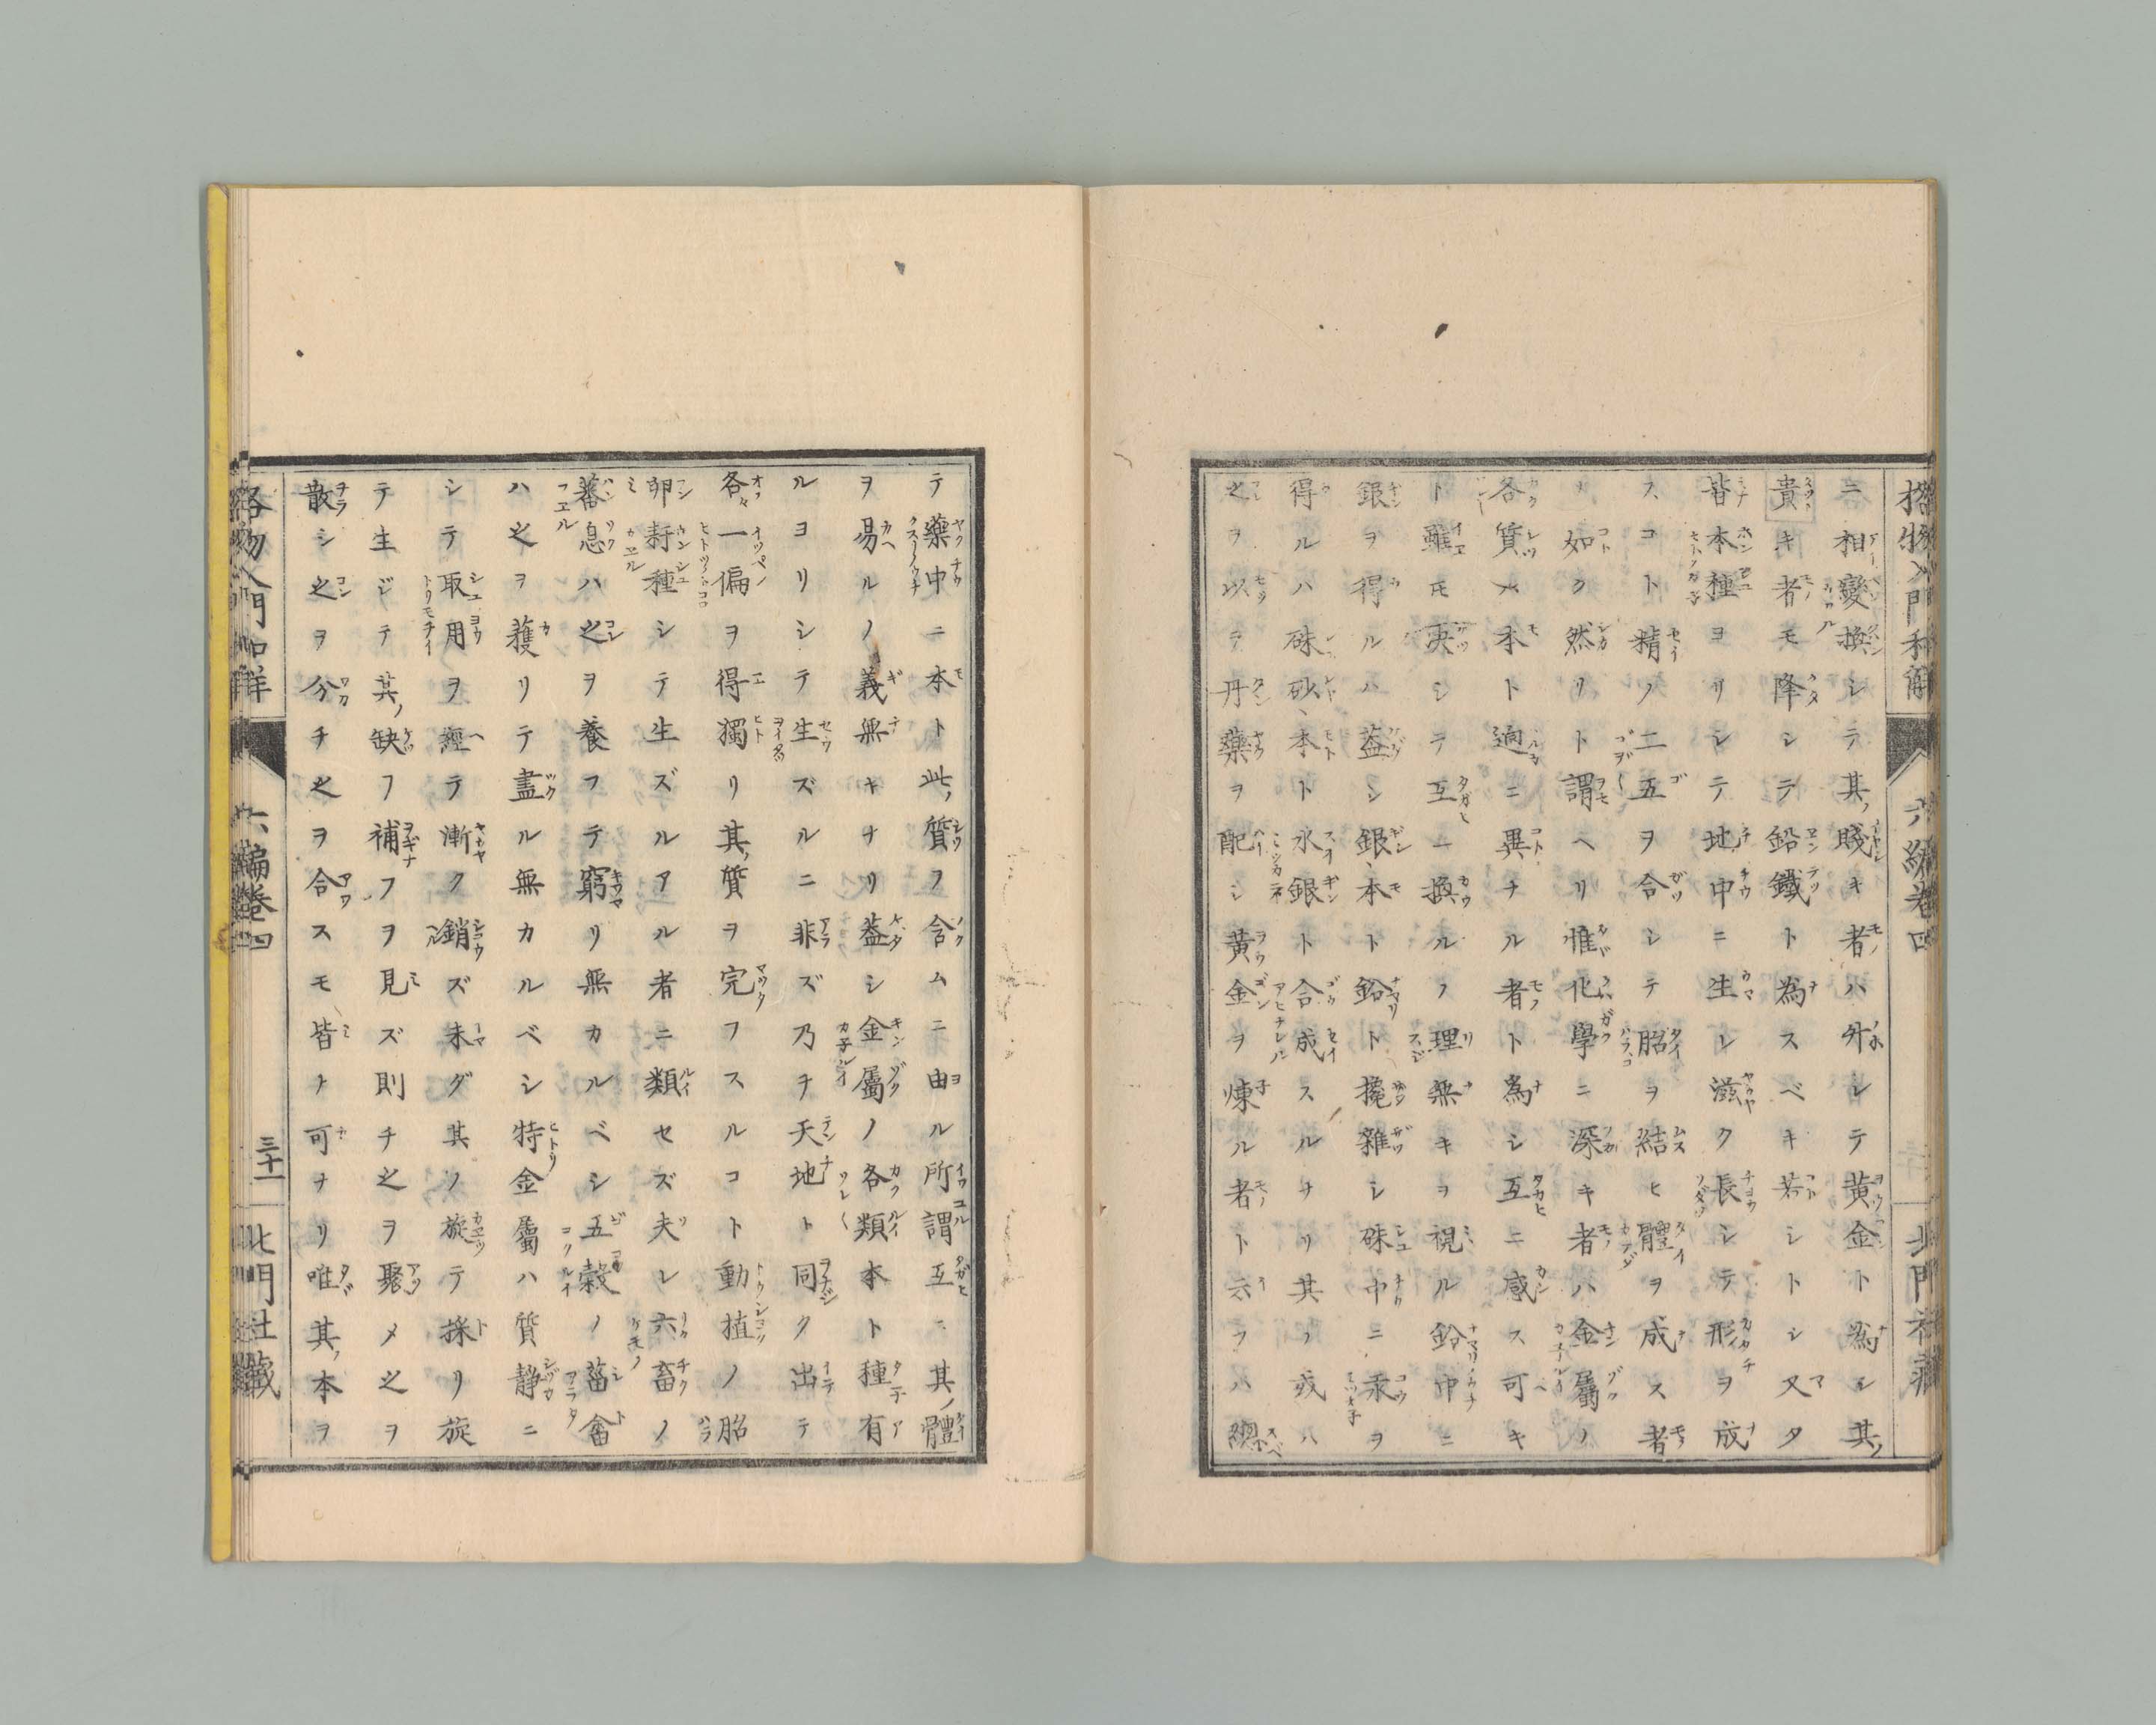 格物入門和解
六編卷四
北門社藏
ニ相變換シテ其ノ賤キ者ハ外シテ黄金ト為シ其ノ
貴キ者モ降シテ鉛鐵ト為スベキ若シトシ又タ
皆本種ヨリシテ地中ニ生レ滋ク長シテ形ヲ成
スコト精ノ二五ヲ合シテ胎ヲ結ヒ體ヲ成ス者
ノ如ク然リト謂ヘリ惟化學ニ深キ者ハ金屬ノ
各質メ本ト逈ニ異ナル者ト為シ互ニ感ス可キ
ト雖モ决シテ互ニ換ルノ理無キヲ視ル鉛中ニ
銀ヲ得ルハ葢シ銀本ト鉛ト攙雜シ硃中ニ汞ヲ
得ルハ硃砂本ト水銀ト合成スルナリ其ノ或ハ
之ヲ以テ丹藥ヲ配シ黄金ヲ煉ル者ト云フハ總
テ藥中ニ本ト此ノ質ヲ含ムニ由ル所謂互ニ其ノ體
ヲ易ルノ義無キナリ葢シ金屬ノ各類本ト種有
ルヨリシテ生ズルニ非ズ乃チ天地ト同ク出テ
各々一偏ヲ得獨リ其ノ質ヲ完フスルコト動植ノ胎
卵莳種シテ生ズルアル者ニ類セズ夫レ六畜ノ
蕃息ハ之ヲ養フテ窮リ無カルベシ五穀ノ菑畬
ハ之ヲ穫リテ盡ル無カルベシ特金屬ハ質靜ニ
シテ取用ヲ經テ漸ク銷ズ未ダ其ノ旋テ採リ旋
テ生ジテ其ノ缺フ補フヲ見ズ則チ之ヲ聚メ之ヲ
散シ之ヲ分チ之ヲ合スモ皆ナ可ナリ唯其ノ本ヲ
格物入門和解
六編卷四
三十一
北門社藏